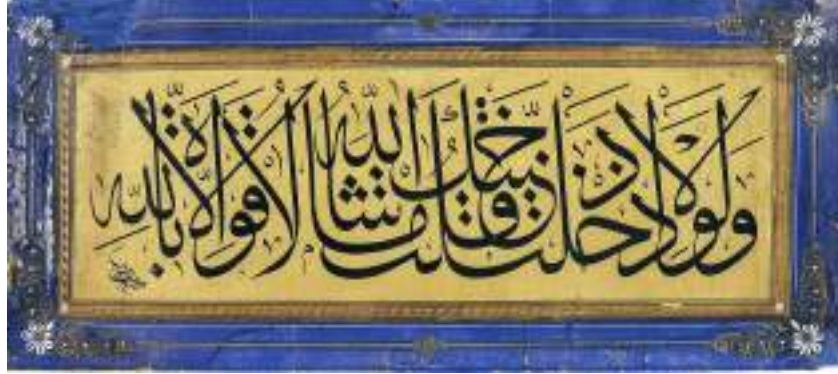 وَلَوْلَا إِذْ دَخَلْتَ جَنَّتَكَ قُلْتَ مَا شَاءَ اللَّهُ لَا قُوَّةَ إِلَّا بِاللَّهِ